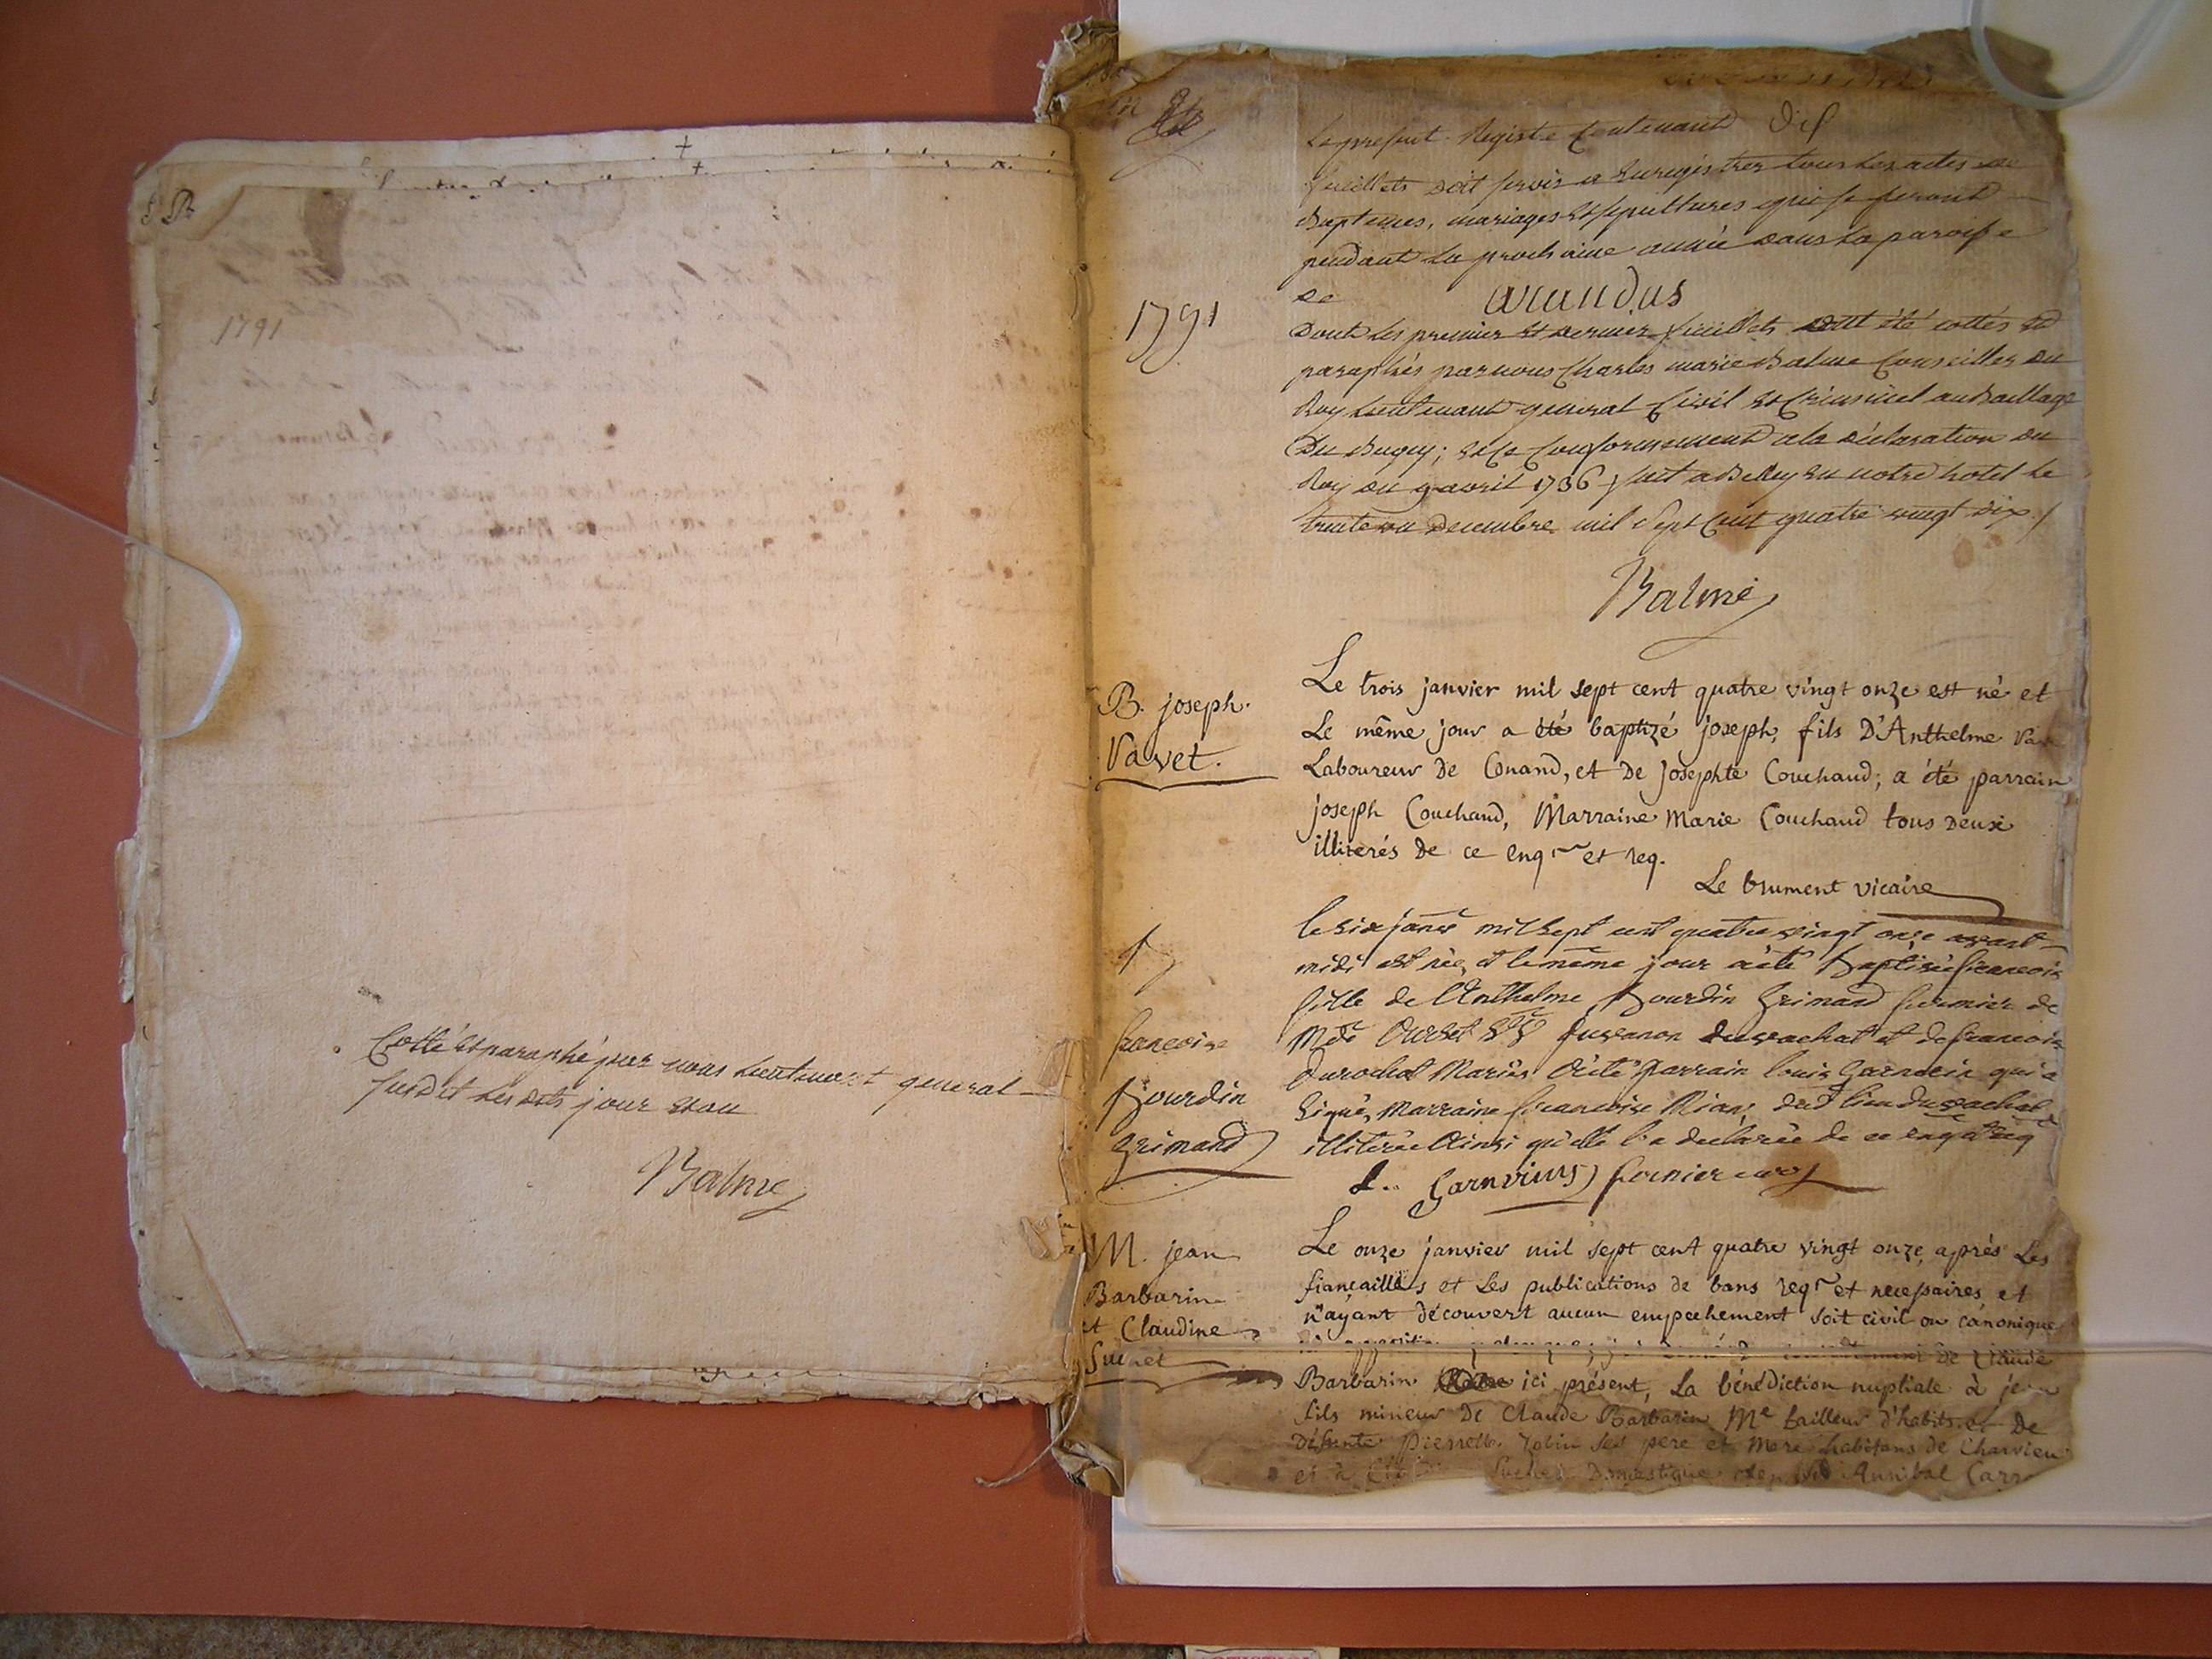 1791
Cotté et paraphé par nous Lieutenant general
susdit lesdits jour et an
Balme
1791
Le present Registre Contenant dix
feuillets doit servir a Enregistrer tous les actes de
Baptemes, mariages et sepultures qui se feront
pendant la prochaine année dans la paroisse
de arandas
dont les premier et dernier feuillets ont été cottés et
paraphés par nous Charles marie Balme Conseiller du
Roy Lieutenant general Civil et Criminel au Baillage
Du Bugey; et ce Conformement a la déclaration du
Roy du 9 avril 1736 fait a Belley en notre hotel le
trente un decembre mil sept cent quatre vingt dix
Balme
B. joseph.
Vavet.
Le trois janvier mil sept cent quatre vingt onze est né et
Le même jour a été baptizé joseph, fils D'Anthelme
Laboureur De Conand, et De Josephte Couchand; a été parrain
joseph Couchand, Marraine Marie Couchand tous Deux
illiterés De ce enq et req.
Le brument vicaire
B
francoise
Bourdin
Grimand
le six janv mil sept cent quatre vingt onze avant
midi est née, et le même jour a été Baptisée francoise
fille de Anthelme Bourdin Grimand fermier de
et de francoise
Durochat Mariés a été Parrain louis qui a
signé, Marraine francoise
illiterée Ainsi qu'elle l'a declarée de ce enq et req
fornier curé
M. jean
Barbarin
et Claudine
Suchet
Le onze janvier mil sept cent quatre vingt onze, après Les
fiancailles et Les publications de bans req et necessaires et
n'ayant découvert aucun empechement soit civil ou canonique
De Claude
Barbarin ici présent, La bénédiction nuptiale à jean
fils mineur De Claude Barbarin Me tailleur d'habits et De
Défunte Pierrette ses pere et Mere habitans de Charvieu
et à Suchet Domestique Annibal